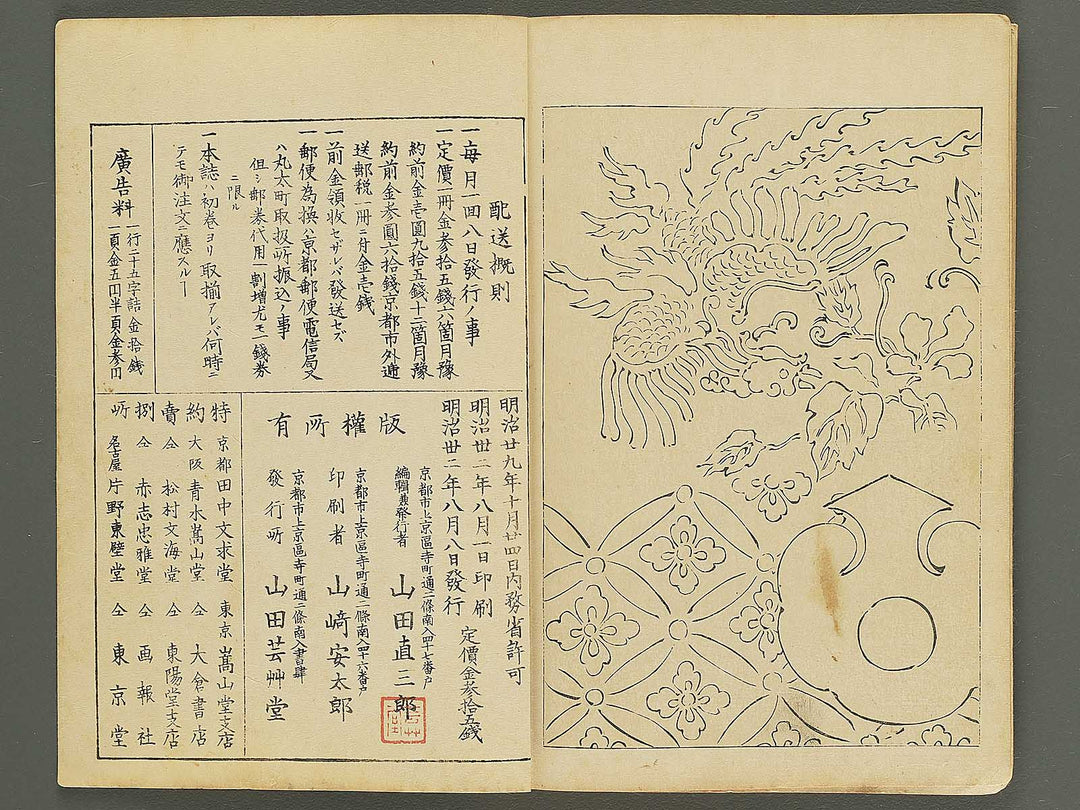 配送概則
一毎月一回八日發行ノ事
一定價一冊金参拾五錢六箇月豫
約前金壱圓九拾五錢十二箇月豫
約前金参圓六拾錢京都市外逓
送郵税一冊ニ付金壱錢
一前金領收セザレバ發送セズ
一郵便為換ハ京都郵便電信局又
ハ丸太町取扱所振込ノ事
但シ郵券代用一割増尤モ一錢券
ニ限ル
一本誌ハ初巻ヨリ取揃アレバ何時ニ
テモ御注文ニ應スヘシ
廣告料
一行二十五字詰金拾錢
一頁金五円半頁金参円
明治廿九年十月廿四日内務省許可
明治卅二年八月一日印刷
明治卅二年八月八日發行
定價金参拾五錢
版權所有
京都市上京區寺町通二條南入四十七番戸
編輯兼發行者 山田直三郎
京都市上京區寺町通二條南入四十六番戸
印刷者 山﨑安太郎
京都市上京區寺町通二條南入書肆
發行所 山田芸艸堂
特約賣捌所
京都田中文求堂 東京嵩山堂支店
大阪青木嵩山堂 仝大倉書店
仝松村文海堂 仝東陽堂支店
仝赤志忠雅堂 仝画報社
名古屋片野東壁堂 仝東京堂